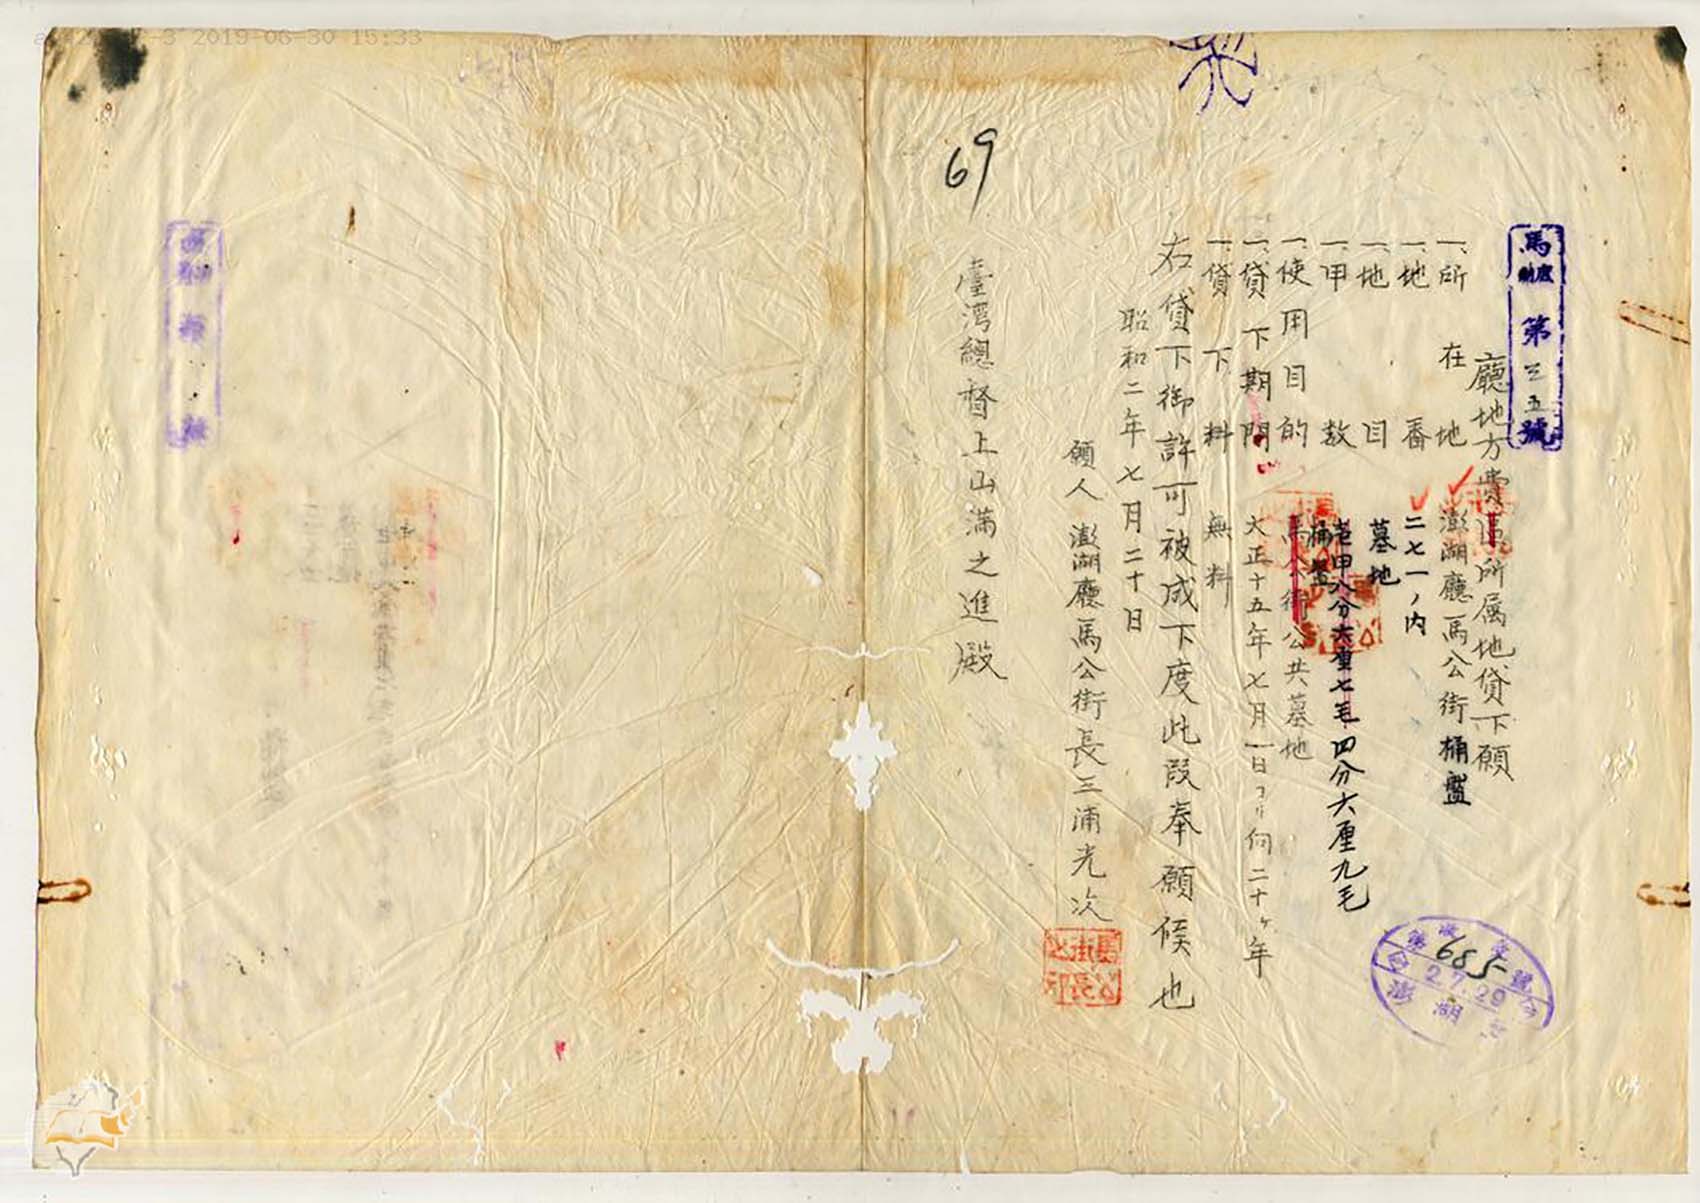 馬庶財第三五號
廳地方費區所属地貸下願
一、所在地 澎湖廳馬公街桶盤
一、地番 二七一ノ内
一、地目 墓地
一、甲数 壱甲八分六厘七毛四分六厘九毛
一、使用目的 桶盤 馬公街公共墓地
一、貸下期間 大正十五年七月一日ヨリ向二十ヶ年
一、貸下料 無料
右貸下御許可被成下度此段奉願候也
昭和二年七月二十日
願人 澎湖廳馬公街長三浦光次
馬公街長之印
臺湾總督上山満之進殿
69
685
2.7.29
澎湖